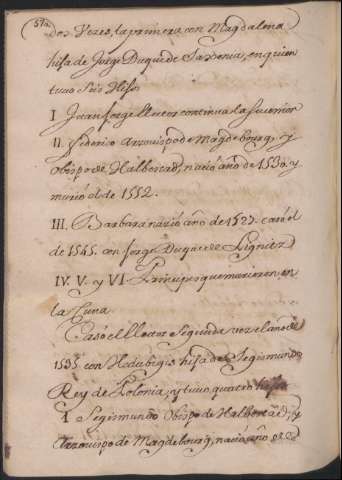 dos Vezes, la primera con Magdalena
hija de Jorge Duque de Saxonia, en quien
tuvo Seis Hijos
I Juan Jorge Elector continua la sucesion
II. Federico Arzouispo de Magdebourg, y
Obispo de Halberstad, nació año de 1530. y
murió el de 1552.
III. Barbara nació año de 1527. casó el
de 1545. con Jorge Duque de Lignitz
IV. V. y VI Principes que murieron en
la Cuna.
Casó el Elector Segunda vez el año de
1535 con Hedubigis hija de Segismundo
Rey de Polonia, y tuvo quatro hijos
I Segismundo Obispo de Halberstad, y
Arzouispo de Magdebourg, nació año de